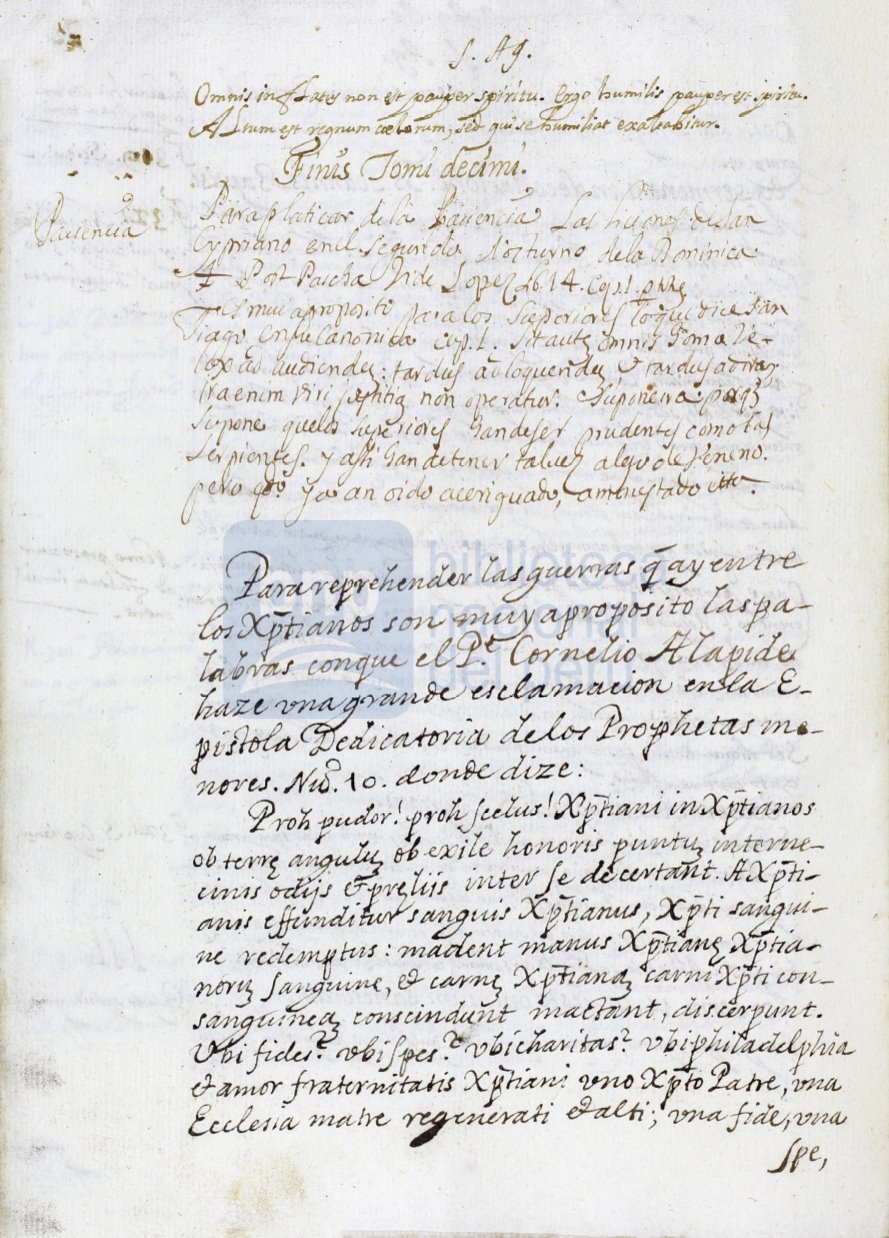 S. Ag.
Omnis inflatus non est pauper spiritu. Ergo humilis pauper est spiritu.
Altum est regnum cœlorum, sed qui se humiliat exaltabitur.
Finis Tomi decimi.
Paciencia
Para platicar de la Paciencia las liciones de san
Cypriano en el segundo Nocturno de la Dominica
4 Post Pascha Vide Lopez lib. 14. Epist.
Es mui aproposito para los superiores lo que dice San
tiago en su Canonica cap. 1. sit autẽ omnis homo ve-
lox ad audiendũ: tardus ad loquendũ & tardus ad irã,
Ira enim viri justitiã non operatur.
supone que los superiores han de ser prudentes como las
serpientes. y assi han de tener tal vez algo de veneno.
pero ya an oido averiguado, amonestado
Para reprehender las guerras q̃ ay entre
los Xp̃tianos son muy aproposito las pa-
labras conque el P.e Cornelio Alapide
haze vna grande esclamacion en la E-
pistola Dedicatoria de los Prophetas me-
nores. Nuo. 10. donde dize:
Proh pudor! proh scelus! Xp̃tiani in Xp̃tianos
ob terrę angulũ, ob exile honoris puntũ interne-
cinis odijs & pręliis inter se decertant. A Xp̃ti-
anis effunditur sanguis Xp̃tianus, Xp̃ti sangui-
ne redemptus: madent manus Xp̃tianę Xp̃tia-
norũ sanguine, & carnẽ Xp̃tianã carni Xp̃ti con-
sanguineã conscindunt mactant, discerpunt.
Vbi fides? vbi spes? vbi charitas? vbi philadelphia
& amor fraternitatis Xp̃tiani vno Xp̃to Patre, vna
Ecclesia matre regenerati & alti; vna fide, vna
spe,
biblioteca
nacional
del perú